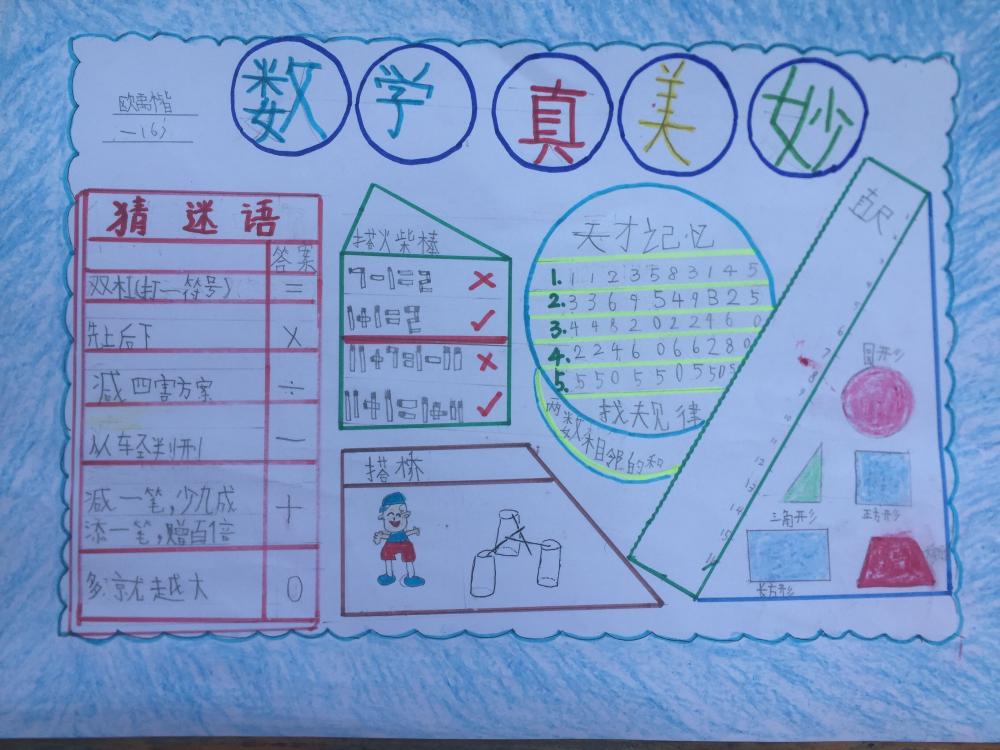 数学真美妙
欧禹楷
一(6)
猜迷语
答案
双杠(打一符号) =
先上后下 ×
减四害方案 ÷
从车轻判刑 一
减一笔,少九成
添一笔,赠百倍 十
多就越大 0
搭火柴棒
7-1=2 ×
1+1=2 ✓
11+7=1-11 ×
11+1=1+11 ✓
搭桥
天才记忆
1. 1 1 2 3 5 8 3 1 4 5
2. 3 3 6 9 5 4 9 3 2 5
3. 4 4 8 2 0 2 2 4 6 0
4. 2 2 4 6 0 6 6 2 8 0
5. 5 5 0 5 5 0 5 5 0 5
找规律
两数相邻的和
直尺
6
7
8
9
10
11
12
13
14
15
16
圆形
三角形
正方形
长方形